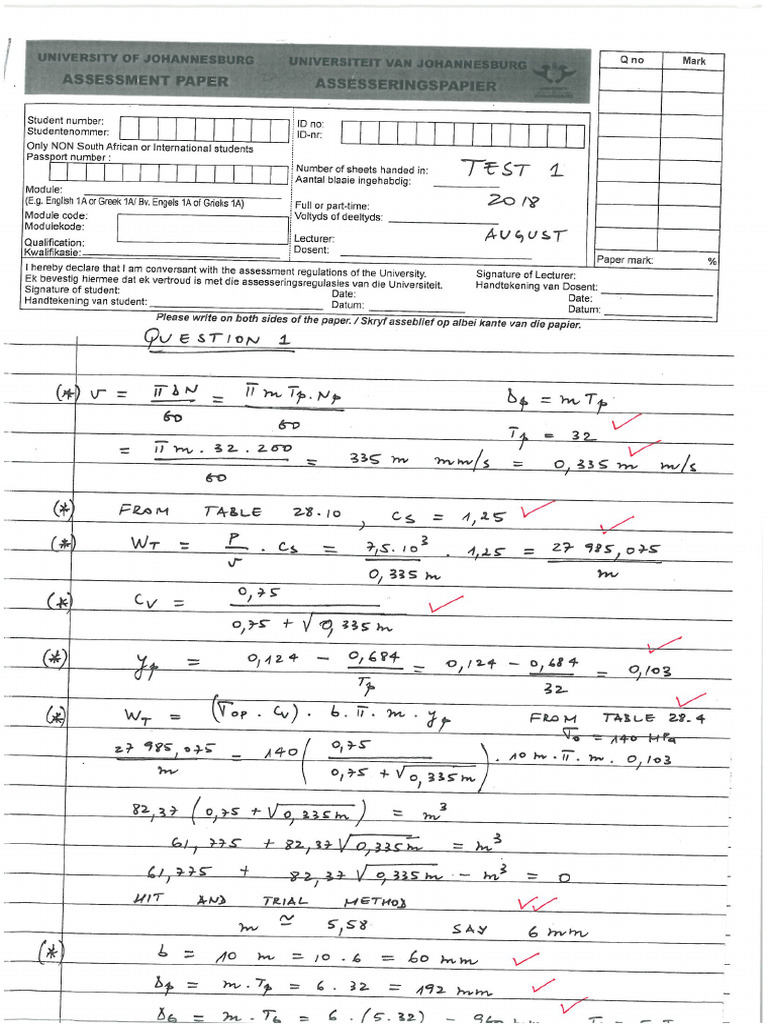 UNIVERSITY OF JOHANNESBURG UNIVERSITEIT VAN JOHANNESBURG
ASSESSMENT PAPER ASSESSERINGSPAPIER
Q no Mark
Student number:
Studentenommer:
ID no:
ID-nr:
Only NON South African or International students
Passport number :
Number of sheets handed in: TEST 1
Aantal blaaie ingehabdig:
Module:
(E.g. English 1A or Greek 1A/ Bv. Engels 1A of Grieks 1A)
Full or part-time: 2018
Voltyds of deeltyds:
Module code:
Modulekode:
Lecturer: AUGUST
Dosent:
Qualification:
Kwalifikasie:
Paper mark: %
I hereby declare that I am conversant with the assessment regulations of the University.
Ek bevestig hiermee dat ek vertroud is met die assesseringsregulasies van die Universiteit.
Signature of student: Date:
Handtekening van student: Datum:
Signature of Lecturer:
Handtekening van Dosent:
Date:
Datum:
Please write on both sides of the paper. / Skryf asseblief op albei kante van die papier.
QUESTION 1
(*) v = πDN/60 = πmTp.Np/60 Dp = mTp
Tp = 32
= πm.32.200/60 = 335 m mm/s = 0,335 m m/s
(*) FROM TABLE 28.10, Cs = 1,25
(*) WT = P/v . Cs = 7,5.10³/0,335m . 1,25 = 27 985,075/m
(*) Cv = 0,75/(0,75 + √0,335m)
(*) yp = 0,124 - 0,684/Tp = 0,124 - 0,684/32 = 0,103
(*) WT = (σop . Cv) . b. π. m. yp FROM TABLE 28.4
σo = 140 MPa
27 985,075/m = 140 (0,75/(0,75 + √0,335m)) . 10m.π.m. 0,103
82,37 (0,75 + √0,335m) = m³
61,775 + 82,37√0,335m = m³
61,775 + 82,37√0,335m - m³ = 0
HIT AND TRIAL METHOD
m ≅ 5,58 SAY 6 mm
(*) b = 10 m = 10.6 = 60 mm
Dp = m.Tp = 6.32 = 192 mm
DG = m.TG = 6.(5.32) - 960 mm